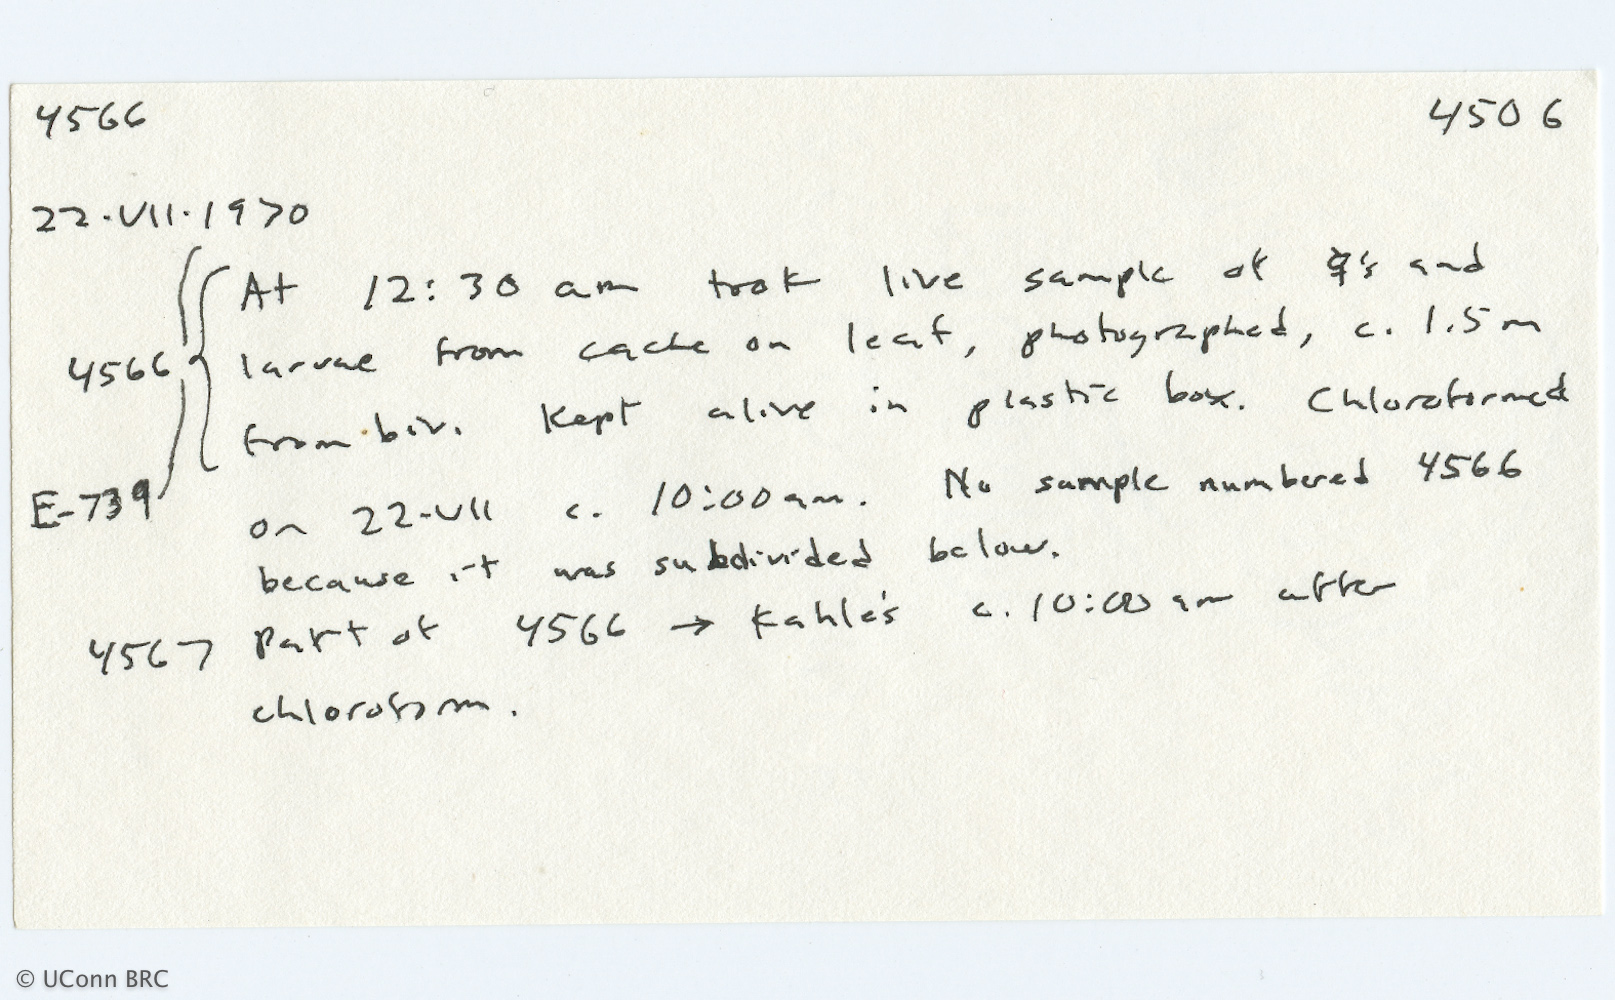 4566 4506
22.VII.1970
At 12:30 am took live sample of ☿'s and
4566 larvae from cache on leaf, photographed, c. 1.5 m
from biv. Kept alive in plastic box. Chloroformed
E-739 on 22-VII c. 10:00 am. No sample numbered 4566
because it was subdivided below.
4567 Part of 4566 → Kahle's c. 10:00 am after
chloroform.
© UConn BRC